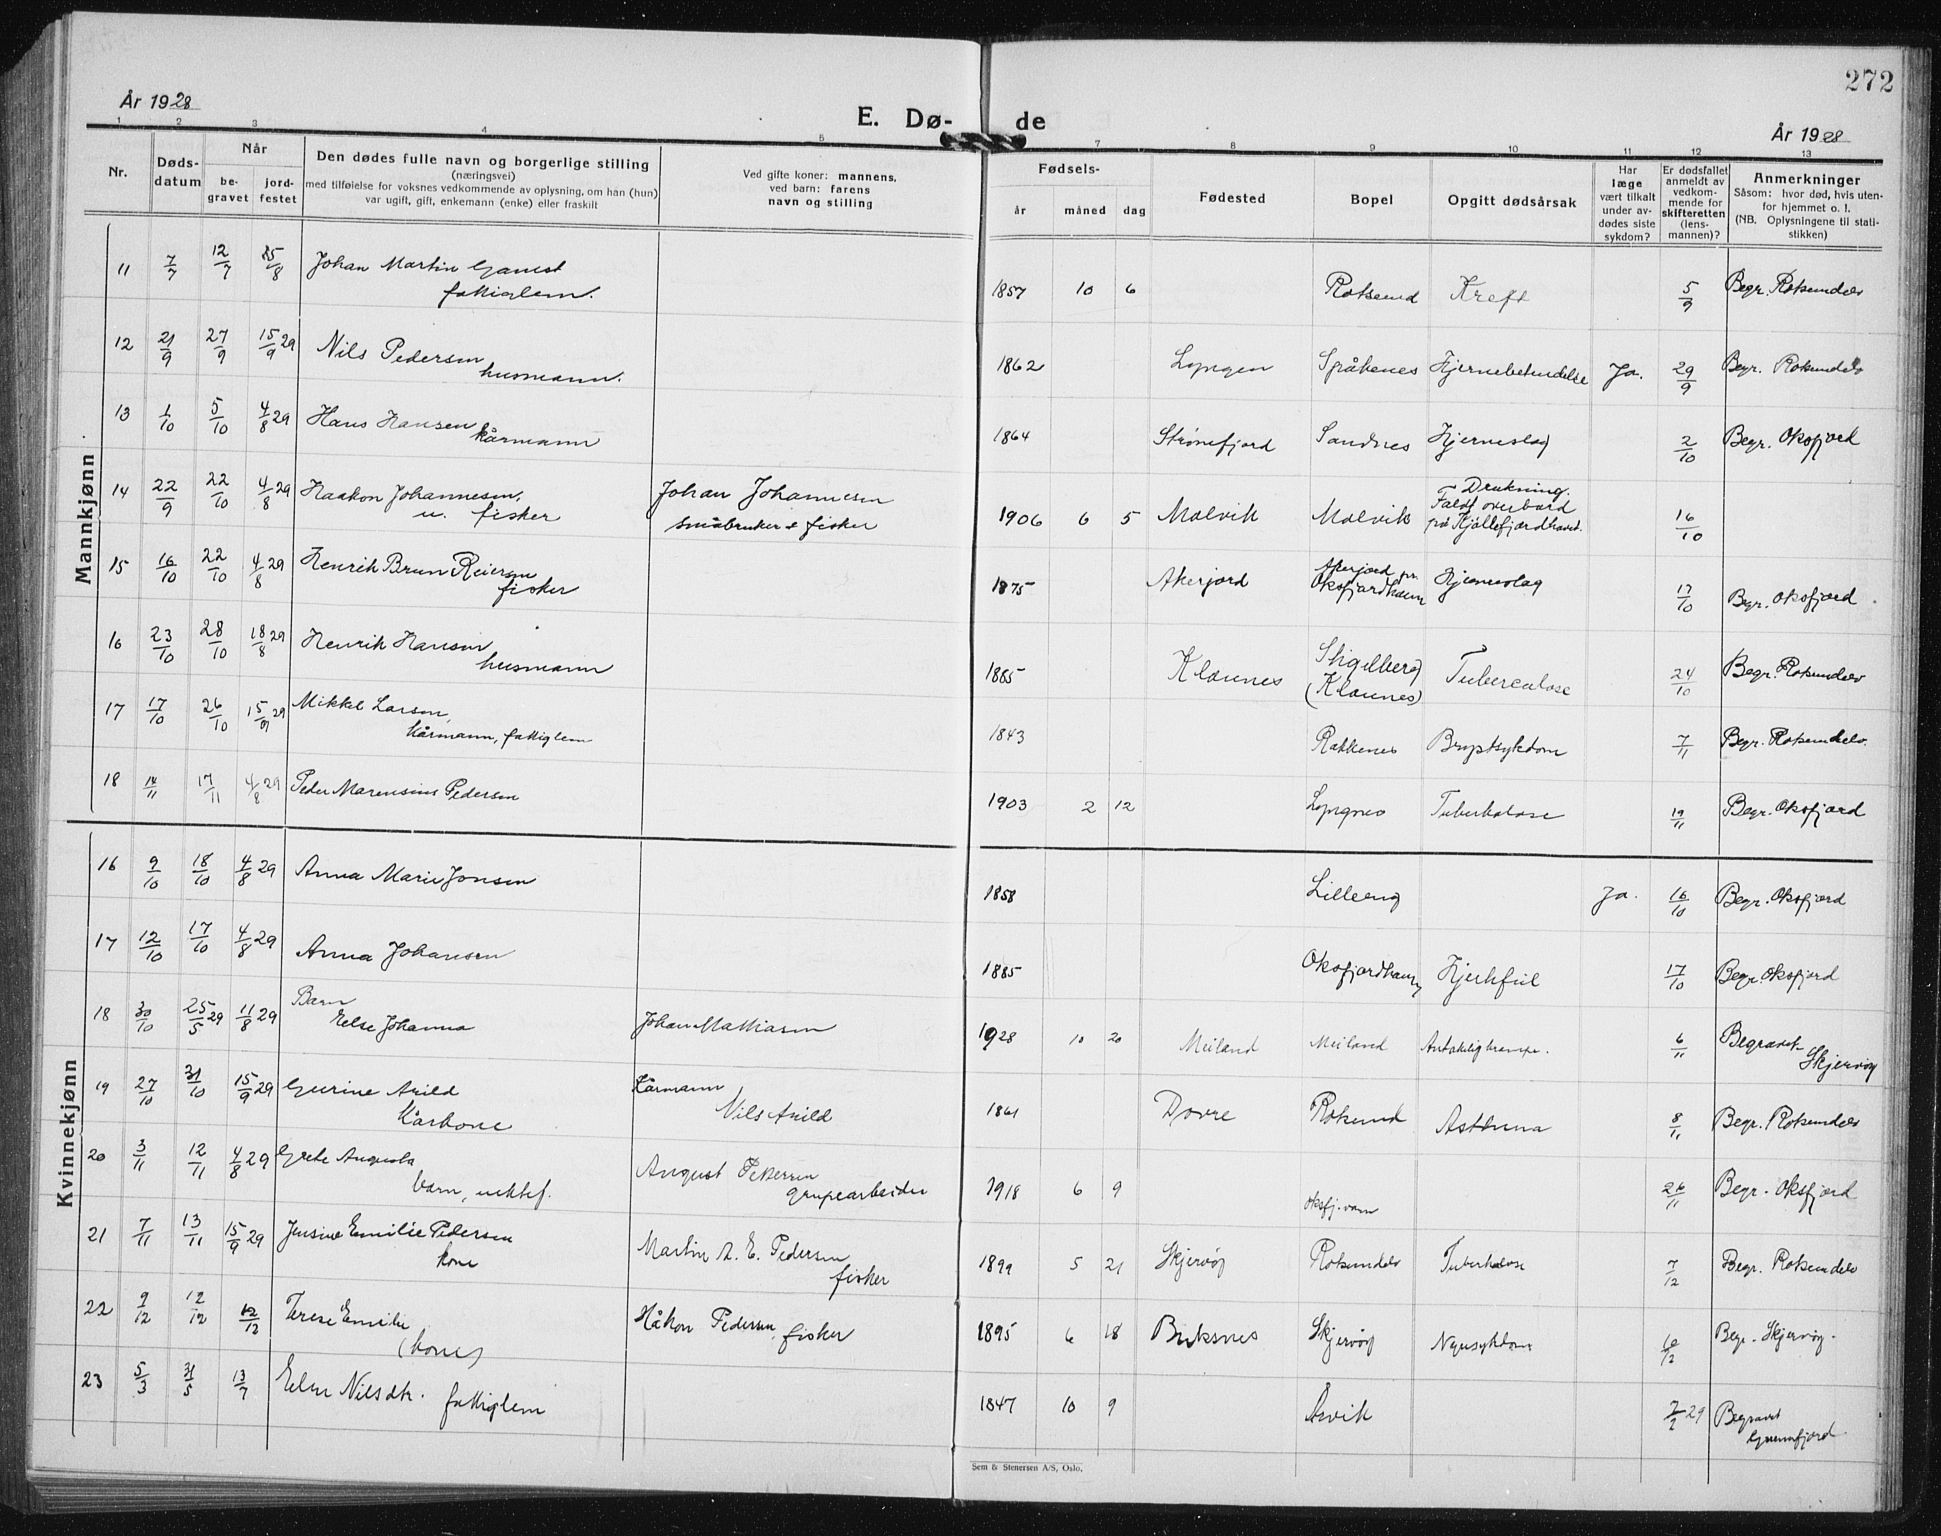 272
År 1928
E. Dø- de
År 1928
1 2 3 4 5 7 8 9 10 11 12 13
Nr. Døds-datum Når be-gravet jord-festet Den dødes fulle navn og borgerlige stilling (næringsvei) med tilføielse for voksnes vedkommende av oplysning, om han (hun) var ugift, gift, enkemann (enke) eller fraskilt Ved gifte koner: mannens, ved barn: farens navn og stilling Fødsels- år måned dag Fødested Bopel Opgitt dødsårsak Har læge vært tilkalt under av-dødes siste sykdom? Er dødsfallet anmeldt av vedkom-mende for skifteretten (lens-mannen)? Anmerkninger Såsom: hvor død, hvis uten-for hjemmet o. l. (NB. Oplysningene til stati-stikken)
Mannkjønn
11 7/7 12/7 25/8 Johan Martin fattiglem. 1857 10 6 Rotsund Kreft 5/9 Begr. Rotsundelv
12 21/9 27/9 15/9 29 Nils Pedersen husmann. 1862 Lyngen Spåkenes Hjernebetendelse Ja. 29/9 Begr. Rotsundelv
13 1/10 5/10 4/8 29 Hans Hansen kårmann 1864 Straumfjord Sandnes Hjerneslag 2/10 Begr. Oksfjord
14 22/9 22/10 4/8 29 Haakon Johannesen, u. fisker Johan Johannesen småbruker & fisker 1906 6 5 Malvik Malvik Drukning. Faldt overbord på Kjøllefjordhavet. 16/10
15 16/10 22/10 4/8 29 Henrik Brun Reiersen fisker 1875 Akerjord Akerjord pr. Oksfjordhavn Hjerneslag 17/10 Begr. Oksfjord
16 23/10 28/10 18/8 29 Henrik Hansen husmann 1885 Klaunes (Klaunes) Tuberculose 24/10 Begr. Rotsundelv
17 17/10 26/10 15/9 29 Mikkel Larsen, kårmann, fattiglem 1843 Brystsykdom 7/11 Begr. Rotsundelv.
18 14/11 17/11 4/8 29 Peder Marensius Pedersen 1903 2 12 Lyngnes Tuberkulose 19/11 Begr. Oksfjord
Kvinnekjønn
16 9/10 18/10 4/8 29 Anna Marie Jonsen 1858 Lilleeng Ja. 16/10 Begr. Oksfjord
17 12/10 17/10 4/8 29 Anna Johansen 1885 Oksfjordhavn Hjertefeil 17/10 Begr. Oksfjord
18 30/10 25/5 29 11/8 29 Barn Else Johanna Johan Mathiasen 1928 10 20 Meiland Meiland 6/11 Begravet Skjervøy
19 27/10 31/10 15/9 29 Gurine Arild kårkone Kårmann Nils Arild 1861 Dovre Rotsund Asthma 8/11 Begr. Rotsundelv
20 3/11 12/11 4/8 29 Grete Augusta barn, uektef. August Pettersen grubearbeider 1918 6 9 Oksfj.vann 26/11 Begr. Oksfjord
21 7/11 13/11 15/9 29 Jensine Emilie Pedersen kone Martin A. E. Pedersen fisker 1899 5 21 Skjervøy Rotsundelv Tuberkulose 7/12 Begr. Rotsundelv
22 9/12 12/12 12/12 Terese Emilie (kone) Håkon Pedersen, fisker 1895 6 18 Buksnes Skjervøy Nyresykdom 10/12 Begr. Skjervøy.
23 5/3 31/5 13/7 Elen Nilsdtr. fattiglem 1847 10 9 Arvik 7/2 29 Begravet
Sem & Stenersen A/S, Oslo.